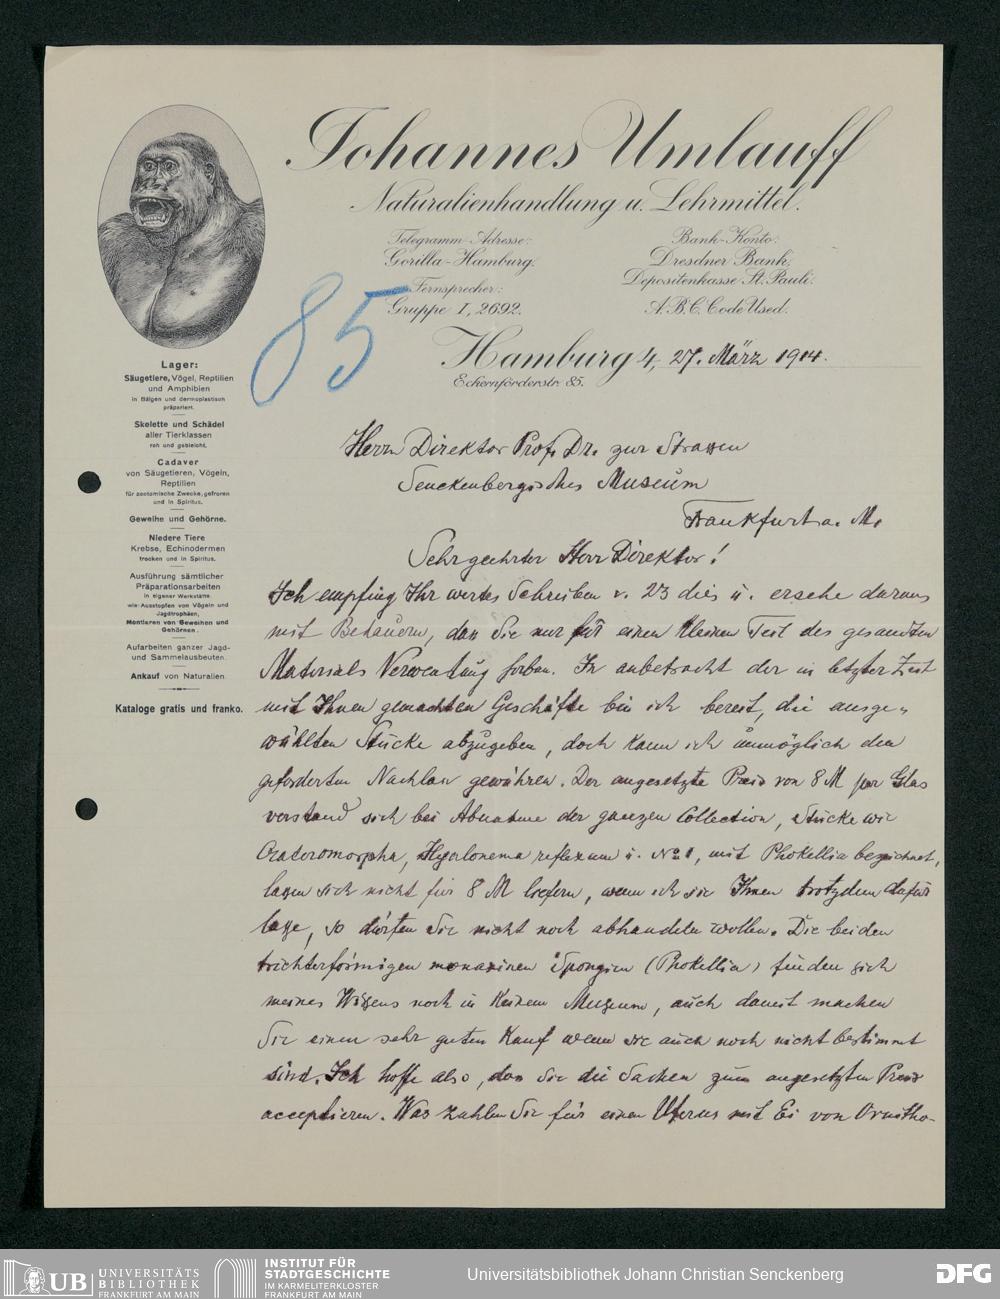 Johannes Umlauff
Naturalienhandlung u. Lehrmittel.
Telegramm-Adresse:
Gorilla-Hamburg.
Fernsprecher:
Gruppe I, 2692.
Bank-Konto:
Dresdner Bank,
Depositenkasse St. Pauli.
A.B.C. Code Used.
85
Hamburg 4, 27. März 1914.
Eckernförderstr. 85.
Lager:
Säugetiere, Vögel, Reptilien
und Amphibien
in Bälgen und dermoplastisch
präpariert.
Skelette und Schädel
aller Tierklassen
roh und gebleicht.
Cadaver
von Säugetieren, Vögeln,
Reptilien
für zootomische Zwecke, gefroren
und in Spiritus.
Geweihe und Gehörne.
Niedere Tiere
Krebse, Echinodermen
trocken und in Spiritus.
Ausführung sämtlicher
Präparationsarbeiten
in eigener Werkstätte
wie Ausstopfen von Vögeln und
Jagdtrophäen,
Montieren von Geweihen und
Gehörnen.
Aufarbeiten ganzer Jagd-
und Sammelausbeuten.
Ankauf von Naturalien.
Kataloge gratis und franko.
Herrn Direktor Prof. Dr. zur Strassen
Senckenbergisches Museum
Frankfurt a. M.
Sehr geehrter Herr Direktor!
Ich empfing Ihr wertes Schreiben v. 23 dies u. ersehe daraus
mit Bedauern, dass Sie nur für einen kleinen Teil des gesandten
Materials Verwendung haben. In anbetracht der in letzter Zeit
mit Ihnen gemachten Geschäfte bin ich bereit, die ausge-
wählten Stücke abzugeben, doch kann ich unmöglich den
geforderten Nachlass gewähren. Der angesetzte Preis von 8 M per Glas
verstand sich bei Abnahme der ganzen Collection, Stücke wie
Hyalonema reflexum u. No 1, mit Phakellia bezeichnet,
lassen sich nicht für 8 M liefern, wenn ich sie Ihnen trotzdem dafür
lasse, so dürfen Sie nicht noch abhandeln wollen. Die beiden
trichterförmigen Spongien (Phakellia) finden sich
meines Wissens noch in keinem Museum, auch damit machen
Sie einen sehr guten Kauf wenn sie auch noch nicht bestimmt
sind. Ich hoffe also, dass Sie die Sachen zum angesetzten Preis
acceptieren. Was zahlen Sie für einen Uterus mit Ei von Ornitho-
UB UNIVERSITÄTS
BIBLIOTHEK
FRANKFURT AM MAIN
INSTITUT FÜR
STADTGESCHICHTE
IM KARMELITERKLOSTER
FRANKFURT AM MAIN
Universitätsbibliothek Johann Christian Senckenberg
DFG